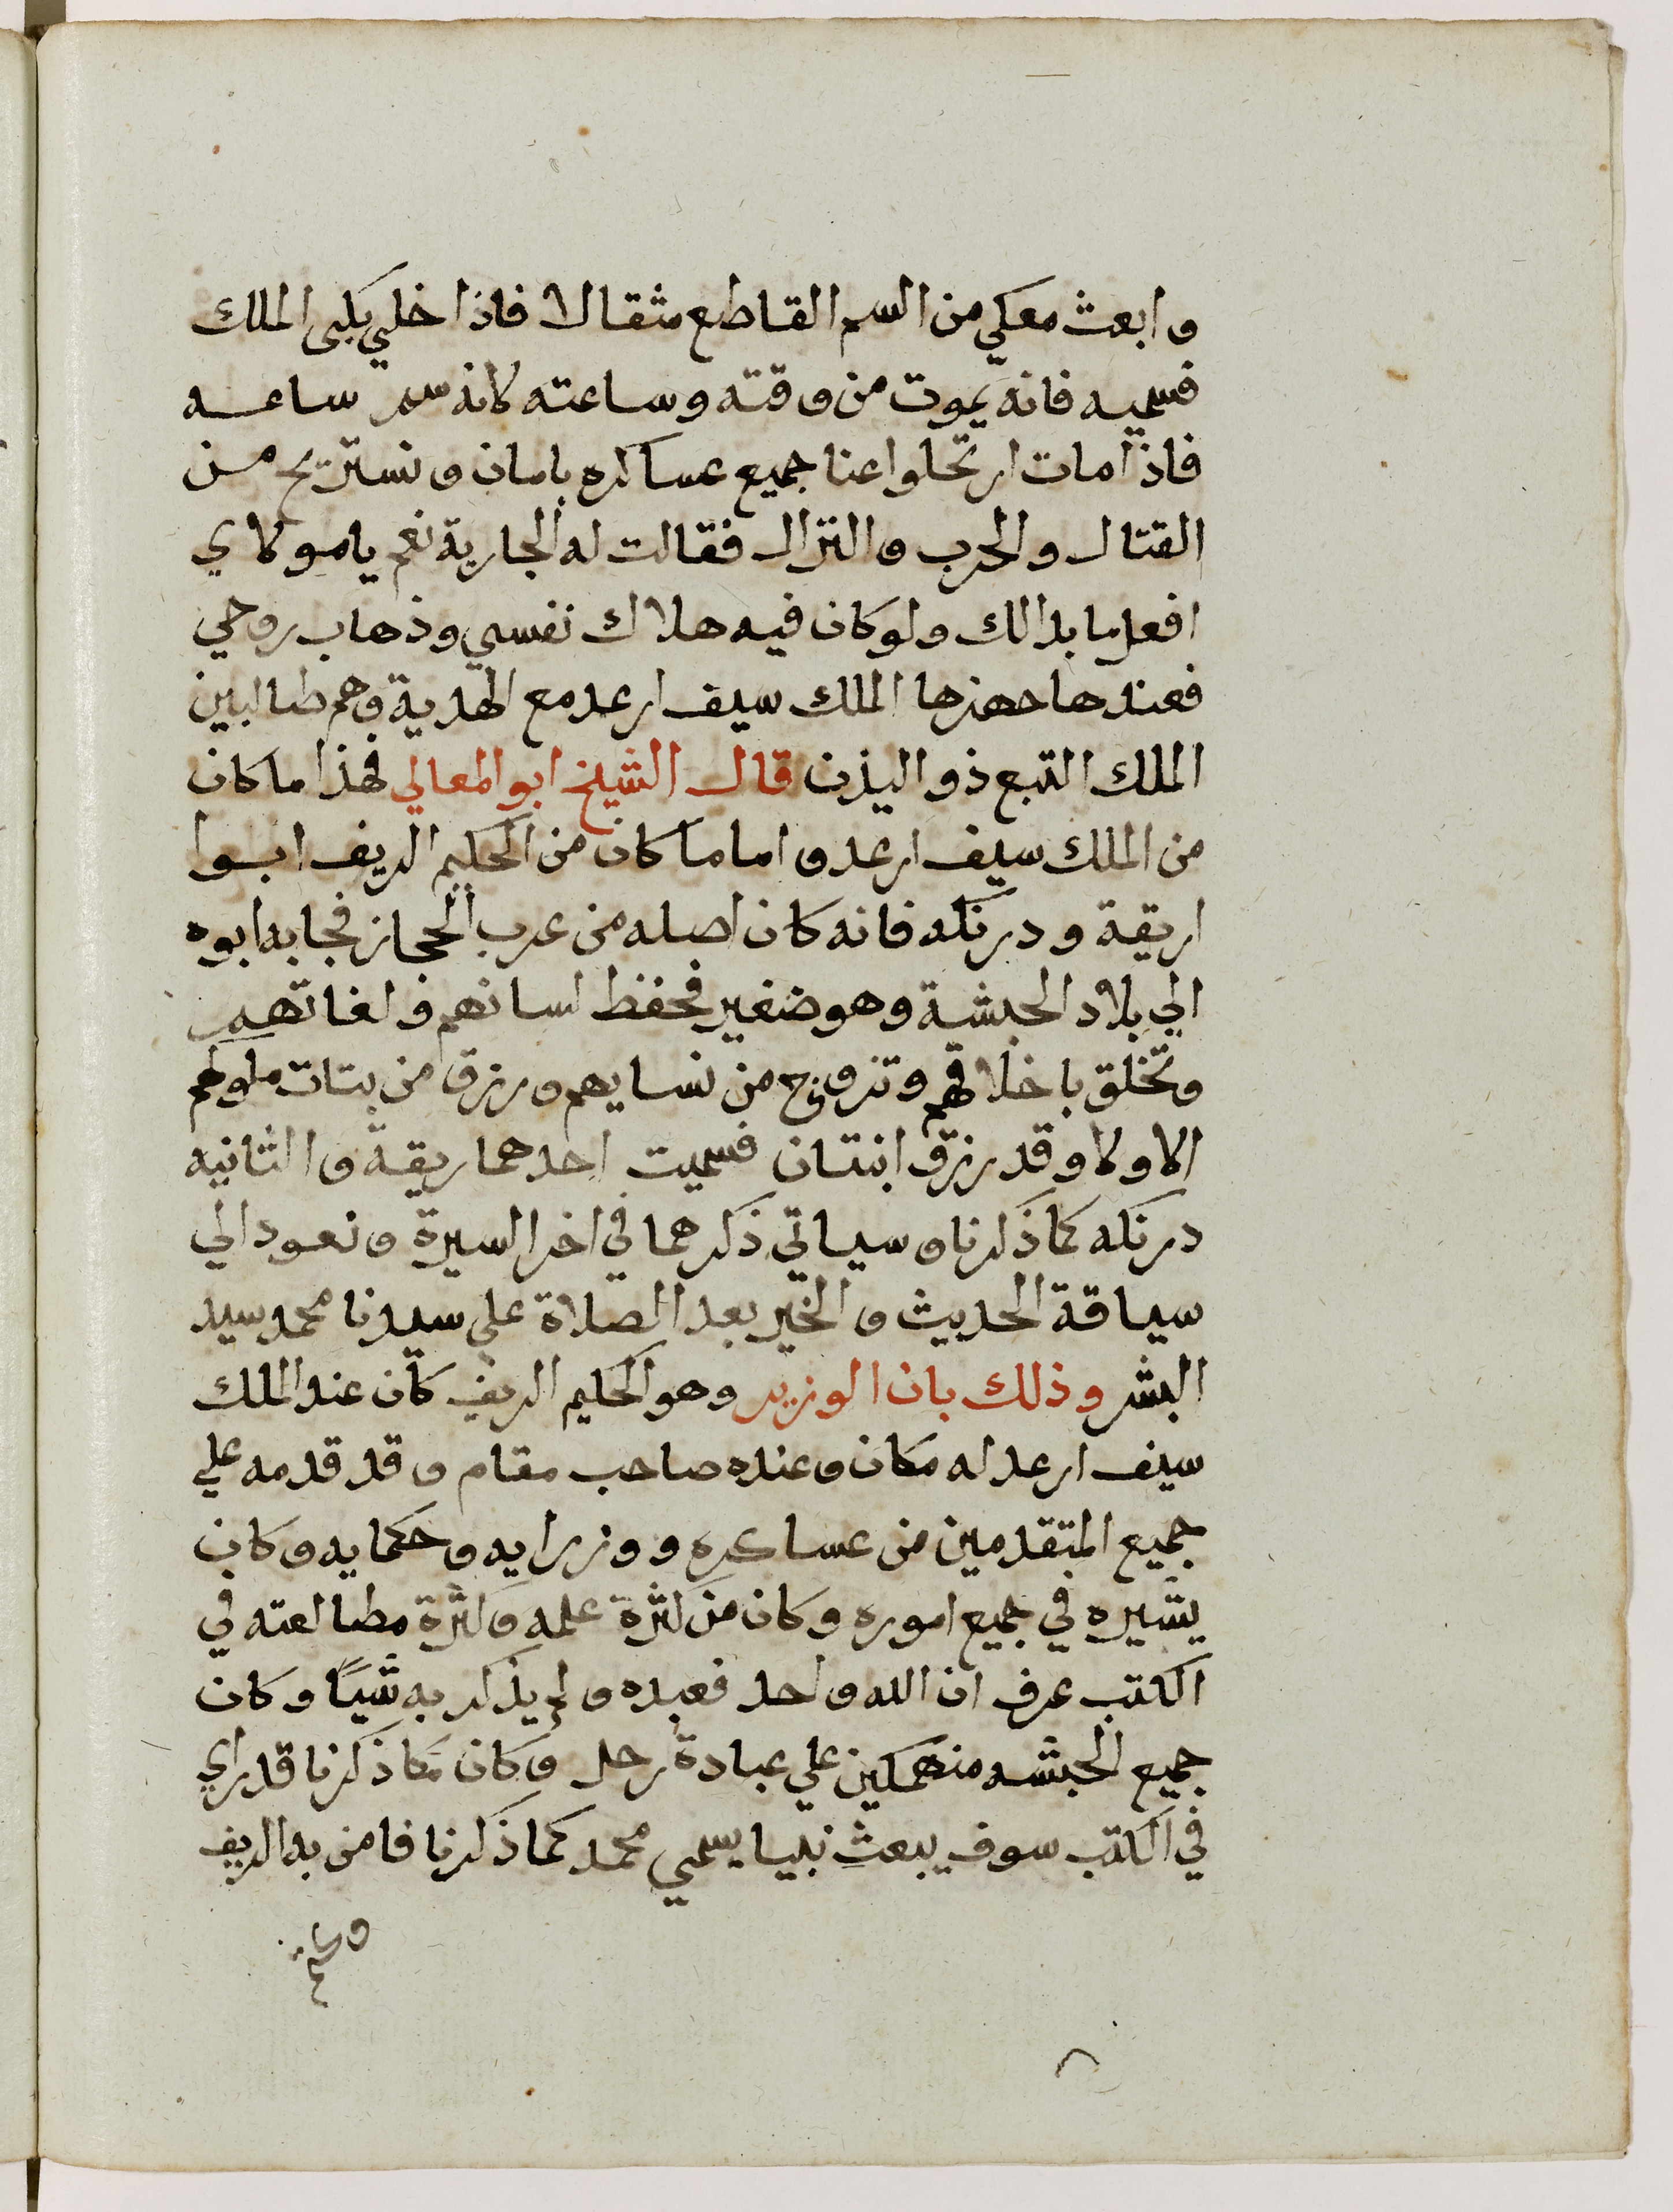 وابعث معكي من السم القاطع مثقالا فاذا خلي بكي الملك
فسميه فانه يموت من وقته وساعته لانه سم ساعـه
فاذا مات ارتحلوا عنا جميع عساكره بامان ونستريح مـن
القتال والحرب والنزال فقالت له الجارية نعم يا مولاي
افعل ما بدالك ولو كان فيه هلاك نفسي وذهاب روحي
فعندها جهزها الملك سيف ارعد مع الهدية وهم طالبين
الملك التبع ذو اليذن قال الشيخ ابو المعالي فهذا ما كان
من الملك سيف ارعد واما ما كان من الحكيم الريف ابـوا
اريقة ودرنكه فانه كان اصله من عرب الحجاز فجا به ابوه
الي بلاد الحبشة وهو ضغير فحفظ لسانهم ولغاتهم
وتخلق باخلاقهم وتزوج من نسايهم ورزق من بتات ملوكهم
الاولا وقد رزق ابنتان فسميت احدهما ريقة والثانيه
درنكه كما ذكرنا وسياتي ذكرهما في اخر السيرة ونعود الي
سياقة الحديث والخير بعد الصلاة علي سيدنا محمد سيد
البشر وذلك بان الوزير وهو الحكيم الريف كان عند الملك
سيف ارعد له مكان وعنده صاحب مقام وقد قدمه علي
جميع المتقدمين من عساكره ووزرايه وحكمايه وكان
يشيره في جميع اموره وكان من كثرة علمه وكثرة مطالعته في
الكتب عرف ان الله واحد فعبده ولم يذكر به شيًا وكان
جميع الحبشه منهمكين علي عبادة زحل وكان كما ذكرنا قد راي
في الكتب سوف يبعث نبيا يسمي محمد كما ذكرنا فامن به الريف